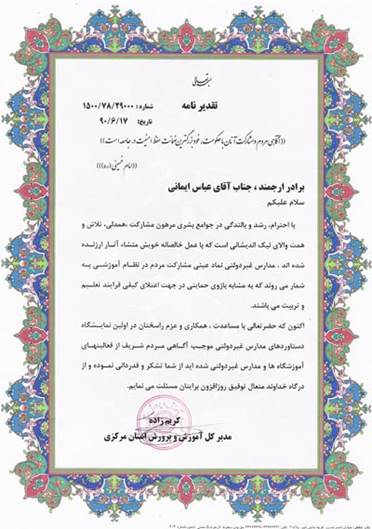 بسمه تعالی
تقدیر نامه
شماره : ۱۵۰۰/۷۸/۲۹۰۰۰
تاریخ: ۹۰/۶/۱۷
((آگاهی مردم و مشارکت آنان با حکومت، خود بزرگترین ضمانت حفظ امنیت در جامعه است))
((امام خمینی(ره)))
برادر ارجمند ، جناب آقای عباس ایمانی
سلام علیکم
با احترام، رشد و بالندگی در جوامع بشری مرهون مشارکت ،همدلی، تلاش و
همت والای نیک اندیشانی است که با عمل خالصانه خویش منشاء آثار ارزنده
شده اند ، مدارس غیردولتی نماد عینی مشارکت مردم در نظام آموزشی به
شمار می روند که به مشابه بازوی حمایتی در جهت اعتلای کیفی فرایند تعلیم
و تربیت می باشند.
اکنون که حضرتعالی با مساعدت ، همکاری و عزم راسختان در اولین نمایشگاه
دستاوردهای مدارس غیردولتی موجب آگاهی مردم شریف از فعالیتهای
آموزشگاه ها و مدارس غیردولتی شده اید از شما تشکر و قدردانی نموده و از
درگاه خداوند متعال توفیق روزافزون برایتان مسئلت می نمایم.
کریم زاده
مدیر کل آموزش و پرورش استان مرکزی